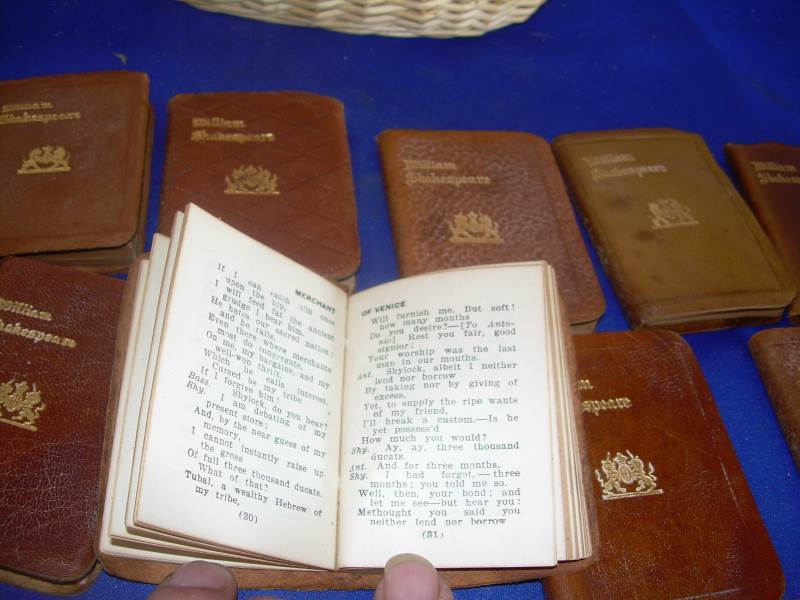 William
Shakespeare
William
Shakespeare
William
Shakespeare
William
Shakespeare
William
William
MERCHANT
If I can catch him once
upon the hip,
I will feed fat the ancient
grudge I bear him.
He hates our sacred nation;
and he rails,
Even there where merchants
most do congregate,
On me, my bargains, and my
well-won thrift,
Which he calls interest.
Cursed be my tribe
If I forgive him!
Bass. Shylock, do you hear?
Shy. I am debating of my
present store;
And, by the near guess of my
memory,
I cannot instantly raise up
the gross
Of full three thousand ducats.
What of that?
Tubal, a wealthy Hebrew of
my tribe,
(30)
OF VENICE
Will furnish me. But soft!
how many months
Do you desire?—[To Anto-
nio] Rest you fair, good
signior;
Your worship was the last
man in our mouths.
Ant. Shylock, albeit I neither
lend nor borrow
By taking nor by giving of
excess,
Yet, to supply the ripe wants
of my friend,
I'll break a custom.—Is he
yet possess'd
How much you would?
Shy. Ay, ay, three thousand
ducats.
Ant. And for three months.
Shy. I had forgot,—three
months; you told me so.
Well, then, your bond; and
let me see—but hear you:
Methought you said you
neither lend nor borrow
(31)